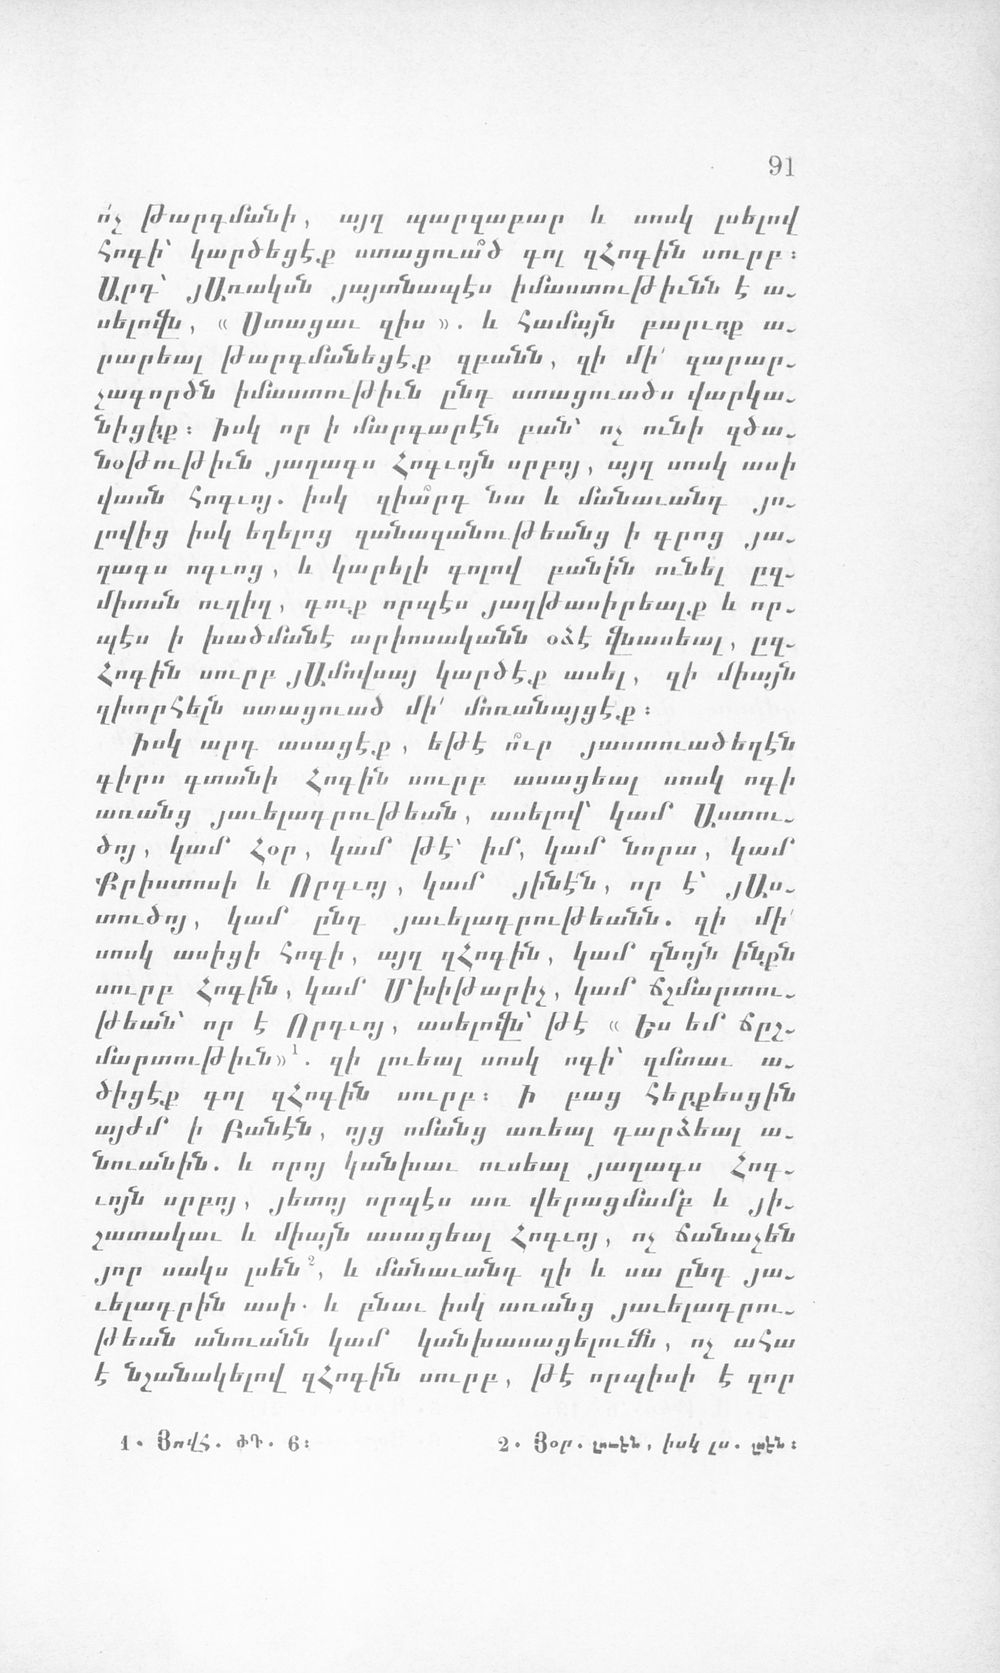 91
ո՛չ թարգմանի, այղ պարզաբար և սոսկ լսելով
հոգի՝ կարծեցէք ստացուա՞ծ գոլ զՀոգին սուրբ:
Արդ՝ յԱռակսն յայտնապէս իմաստութիւնն է ա֊
սելովն, « Ստացաւ զիս ». և համայն բարւոք ա֊
րարեալ թարգմանեցէք զբանն, զի մի՛ զարար֊
չագործն իմաստութիւն ընդ ստացուածս վարկա֊
նիցիք: Իսկ որ ի մարգարէն բան՝ ոչ ունի զծա֊
նօթութիւն յաղագս Հոգւոյն սրբոյ, այղ սոսկ ասի
վասն հոգւոյ. իսկ զիա՞րդ նա և մանաւանդ յո֊
լովից իսկ եղելոց զանազանութեանց ի գրոց յա֊
ղագս ոգւոց, և կարելի գոլով բանին ունել ըզ֊
միտսն ուղիղ, դուք որպէս յաղթասիրեալք և որ֊
պէս ի խածմանէ արիոսականն օձէ վնասեալ, ըզ֊
Հոգին սուրբ յԱմովսայ կարծէք ասել, զի միայն
զխորհելն ստացուած մի՛ մոռանայցէք:
Իսկ արդ ասացէք, եթէ ո՞ւր յաստուածեղէն
գիրս գտանի Հոգին սուրբ ասացեալ սոսկ ոգի
առանց յաւելադրութեան, ասելով՝ կամ Աստու֊
ծոյ, կամ Հօր, կամ թէ՝ իմ, կամ նորա, կամ
Քրիստոսի և Որդւոյ, կամ յինէն, որ է՝ յԱս֊
տուծոյ, կամ ընդ յաւելադրութեանն. զի մի՛
սոսկ ասիցի հոգի, այղ զՀոգին, կամ զնոյն ինքն
սուրբ Հոգին, կամ Մխիթարիչ, կամ ճշմարտու֊
թեան՝ որ է Որդւոյ, ասելովն՝ թէ « Ես եմ ճըշ֊
մարտութիւն»1. զի լուեալ սոսկ ոգի՝ զմտաւ ա֊
ծիցէք գոլ զՀոգին սուրբ: Ի բաց հերքեսցին
այժմ ի Բանէն, ոյց ոմանց առեալ դարձեալ ա֊
նուանին. և որոյ կանխաւ ուսեալ յաղագս Հոգ֊
ւոյն սրբոյ, յետոյ որպէս առ վերացմամբ և յի֊
շատակաւ և միայն ասացեալ Հոգւոյ, ոչ ճանաչեն
յոր սակս լսեն2, և մանաւանդ զի և սա ընդ յա֊
ւելադրին ասի. և բնաւ իսկ առանց յաւելադրու֊
թեան անուանն կամ կանխասացելումն, ոչ ահա
է նշանակելով զՀոգին սուրբ, թէ որպիսի է զոր
1. Յովհ. ԺԴ. 6:
2. Յօր. լուսէն, իսկ լս. լսէն: